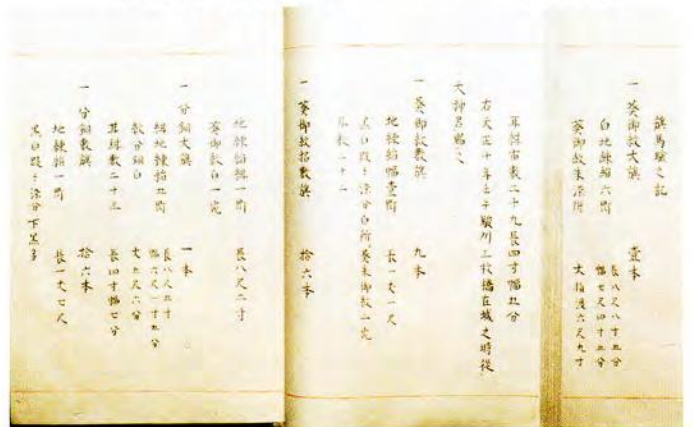 旗馬驗之記
一 葵御紋大旗 壹本
白地練絹六幅 長八尺八寸五分
幅七尺四寸五分
葵御紋朱深附 丈指渡六尺九寸
耳絹布数二十九長四寸幅五分
右天正十年壬午駿州三枚橋在城之時従
大神君賜之
一 葵御紋数旗 九本
地練絹幅壹幅 長一丈一尺
黒白段々深分白所葵朱御紋二宛
耳数二十二
一 葵御紋招数旗 拾六本
地練絹 一幅 長八尺二寸
葵御紋白一宛
一 分銅大旗 一本
紺地練絹五幅 長八尺五寸
幅六尺一寸五分
紋分銅白 丈五尺六分
耳絹数二十三 長四寸幅七分
一 分銅数旗 拾六本
地練絹一幅 長一丈七尺
黒白段々深分下黒多